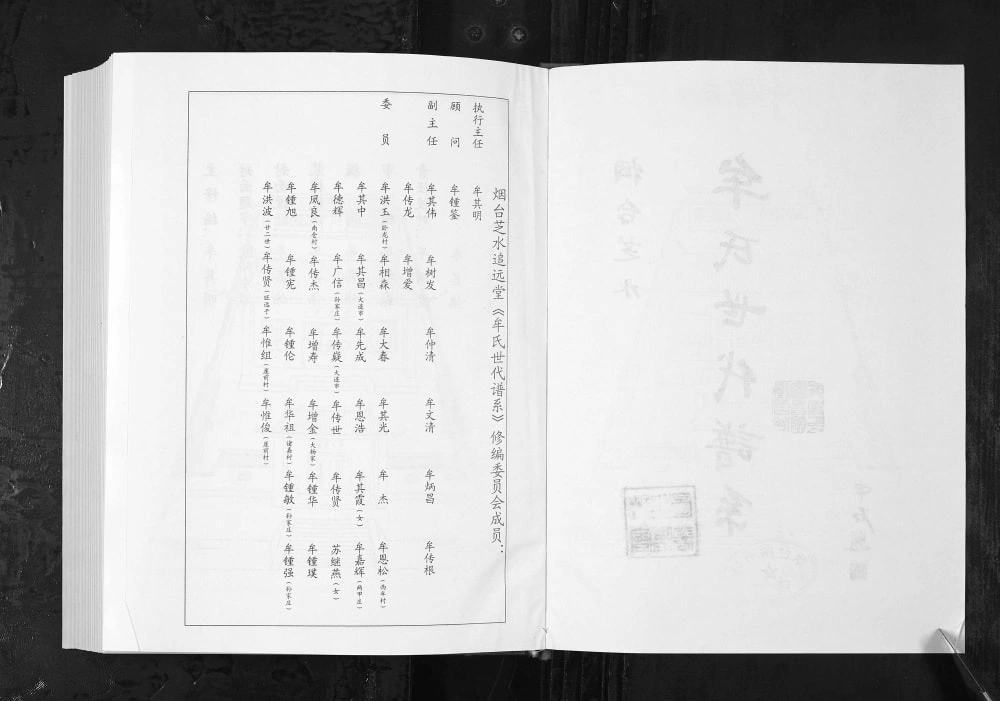 烟台芝水追远堂《牟氏世代谱系》修编委员会成员：
执行主任 牟其明
顾问 牟锺鉴
副主任 牟其伟 牟树发 牟仲清 牟文清 牟炳昌 牟传根
牟传龙 牟增爱
委员 牟洪玉（卧龙村） 牟相森 牟大春 牟其光 牟杰 牟恩松（西牟村）
牟其中 牟其昌（大连市） 牟先成 牟恩浩 牟其霞（女） 牟嘉辉（两甲庄）
牟德辉 牟广信（孙家庄） 牟传燚（大连市） 牟传世 牟传贤 苏继燕（女）
牟凤良（南仓村） 牟传杰 牟增寿 牟增金（大杨家） 牟锺华 牟锺璞
牟锺旭 牟锺宪 牟锺伦 牟华祖（诸嘉村） 牟锺敏（孙家庄） 牟锺强（孙家庄）
牟洪波（廿二世） 牟传贤 牟惟组（崖前村） 牟惟俊（崖前村）
烟台芝水
牟氏世代谱系